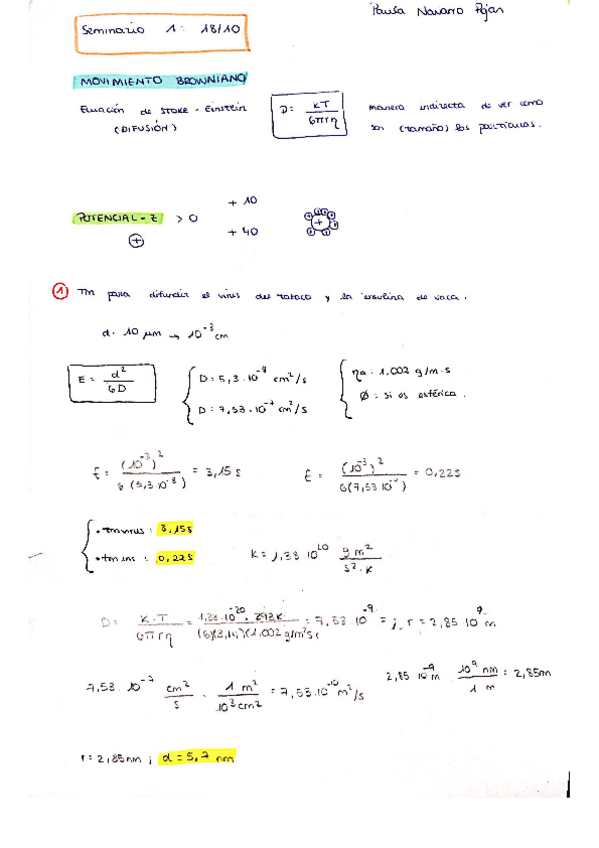 Paula Navarro Pojan
Seminario 1: 18/10
MOVIMIENTO BROWNIANO
Ecuación de STOKE - Einstein D = KT / 6πrη manera indirecta de ver como
(DIFUSIÓN) son (tamaño) las partículas.
+ 10
POTENCIAL - Z > 0
+ 40
① Tm para difundir el virus del tabaco y la insulina de vaca.
d = 10 μm → 10⁻³ cm
E = d² / 6D { D = 5,3 · 10⁻⁸ cm²/s { ηa = 1.002 g/m·s
D = 7,53 · 10⁻⁷ cm²/s Ø = si es esférica.
E = (10⁻³)² / 6 (5,3 10⁻⁸) = 3,15 s E = (10⁻³)² / 6(7,53 10⁻⁷) = 0,22s
• tm virus : 3,15s
• tm ins : 0,22s K = 1,38 10²⁰ g m² / s² · K
D = K·T / 6πrη = 1,38·10⁻²⁰ · 293K / (6)(3,14)(1.002 g/m³s = 7,53 10⁻⁹ = ; r = 2,85 10⁻⁹ m
7,53 · 10⁻⁷ cm² / s · 1 m² / 10³ cm² = 7,53·10⁻¹⁰ m²/s 2,85 10⁻⁹ m · 10⁹ nm / 1 m = 2,85m
r = 2,85nm ; d = 5,7 nm